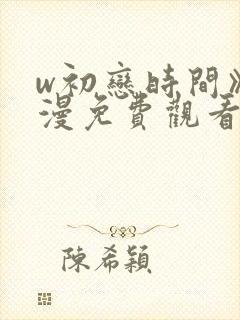 w初戀時間》
漫免費觀看
陳希穎